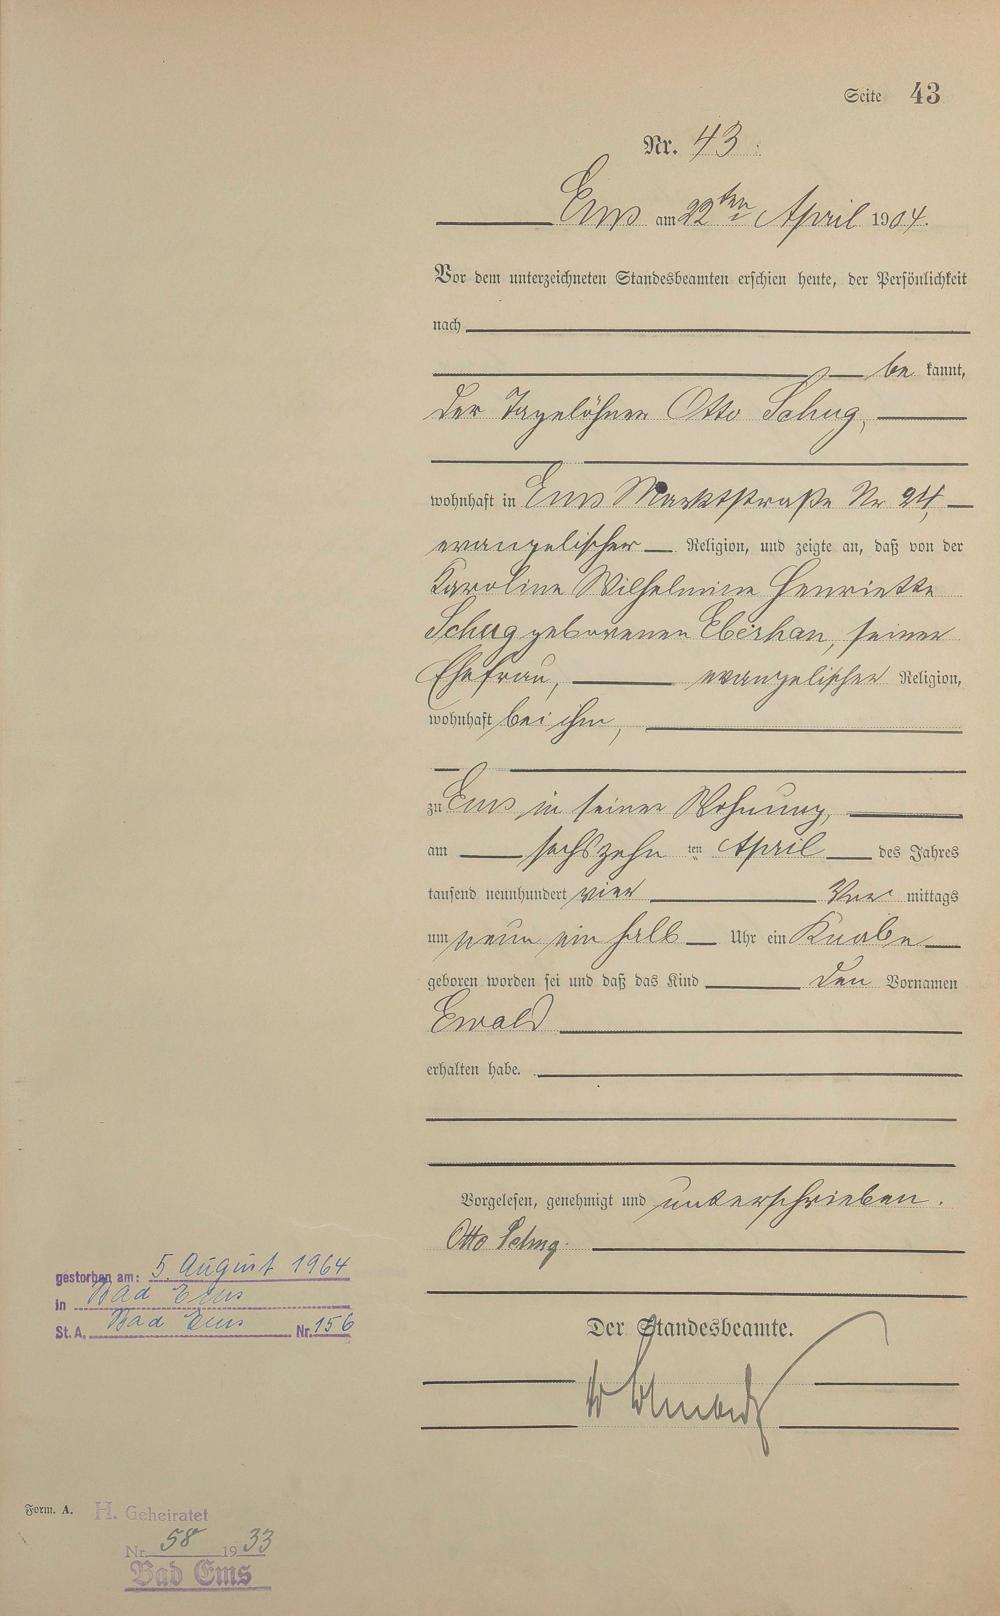 Seite 43
Nr. 43.
Ems am 22ten April 1904.
Vor dem unterzeichneten Standesbeamten erschien heute, der Persönlichkeit
nach
be kannt,
der Tagelöhner Otto Schug,
wohnhaft in Ems Marktstraße Nr 24,
evangelischer Religion, und zeigte an, daß von der
Karoline Wilhelmine Henriette
Schug geborenen, seiner
Ehefrau, evangelischer Religion,
wohnhaft bei ihm,
zu Ems in seiner Wohnung,
am sechszehn ten April des Jahres
tausend neunhundert vier Vor mittags
um neun ein halb Uhr ein Knabe
geboren worden sei und daß das Kind den Vornamen
Ewald
erhalten habe.
Vorgelesen, genehmigt und unterschrieben.
Otto Schug.
Der Standesbeamte.
gestorben am: 5. August 1964
in Bad Ems
St. A. Bad Ems Nr. 156
Form. A.
H. Geheiratet
Nr. 58 1933
Bad Ems